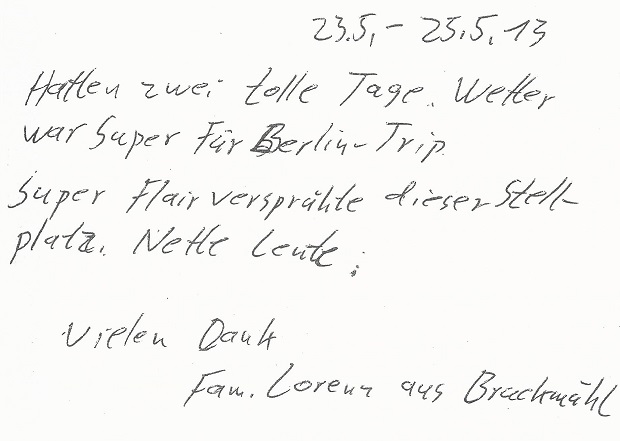 23.5. - 25.5.13
Hatten zwei tolle Tage. Wetter
war Super Für Berlin-Trip
Super Flair versprühte dieser Stell-
platz. Nette Leute.
Vielen Dank
Fam. Lorenz aus Bruckmühl